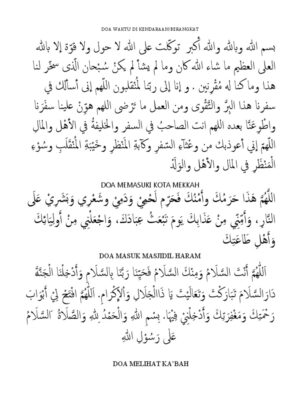 DOA WAKTU DI KENDARAAN BERANGKAT
بسم الله وبالله والله أكبر توكلت على الله لا حول ولا قوّة إلا بالله
العلى العظيم ما شاء الله كان وما لم يشأ لم يكن سُبْحان الّذى سخّر لنا
هذا وما كنا له مُقْرنين . و إنا إلى ربّنا لمنقلبون اللّهم إنى أسألك في
سفرنا هذا البرَّ والتَّقْوى ومن العمل ما ترْضى اللّهم هوّنْ علينا سفَرَنا
واطْوِعنّا بعده اللهم انت الصاحبُ في السفر والخليفةُ في الأهْل والمالِ
اللّهمّ إني أعوذبك من وعْثآء السّفرِ وكآبةِ المَنْظرِ وخَيْبَةِ المُنْقَلَبِ وسُوْءِ
المَنْظَرِ في المال والأهْلِ والوَلَدْ
DOA MEMASUKI KOTA MEKKAH
اَللّهُمَّ هَذَا حَرَمُكَ وَأَمْنُكَ فَحَرِّم لَحْمِيْ وَدَمِيْ وَشَعْرِي وَبَشَرِيْ عَلَى
النَّارِ، وَآمِنِّي مِنْ عَذَابِكَ يَومَ تَبْعَثُ عِبَادَكَ، وَاجْعَلْنِي مِنْ أَوْلِيَائِكَ
وَأَهْلِ طَاعَتِكَ
DOA MASUK MASJIDIL HARAM
اَللّٰهُمَّ أَنْتَ السَّلَامُ وَمِنْكَ السَّلَامُ فَحَيِّنَا رَبَّنَا بِالسَّلَامِ وَأَدْخِلْنَا الْجَنَّةَ
دَارَالسَّلَامِ تَبَارَكْتَ وَتَعَالَيْتَ يَا ذَاالْجَلَالِ وَالْاِكْرَامِ. اَللّٰهُمَّ افْتَحْ لِيْ أَبْوَابَ
رَحْمَتِكَ وَمَغْفِرَتِكَ وَأَدْخِلْنِيْ فِيْهَا. بِسْمِ اللهِ وَالْحَمْدُ لِلهِ وَالصَّلَاةُ وَالسَّلَامُ
عَلَى رَسُوْلِ اللهِ
DOA MELIHAT KA'BAH